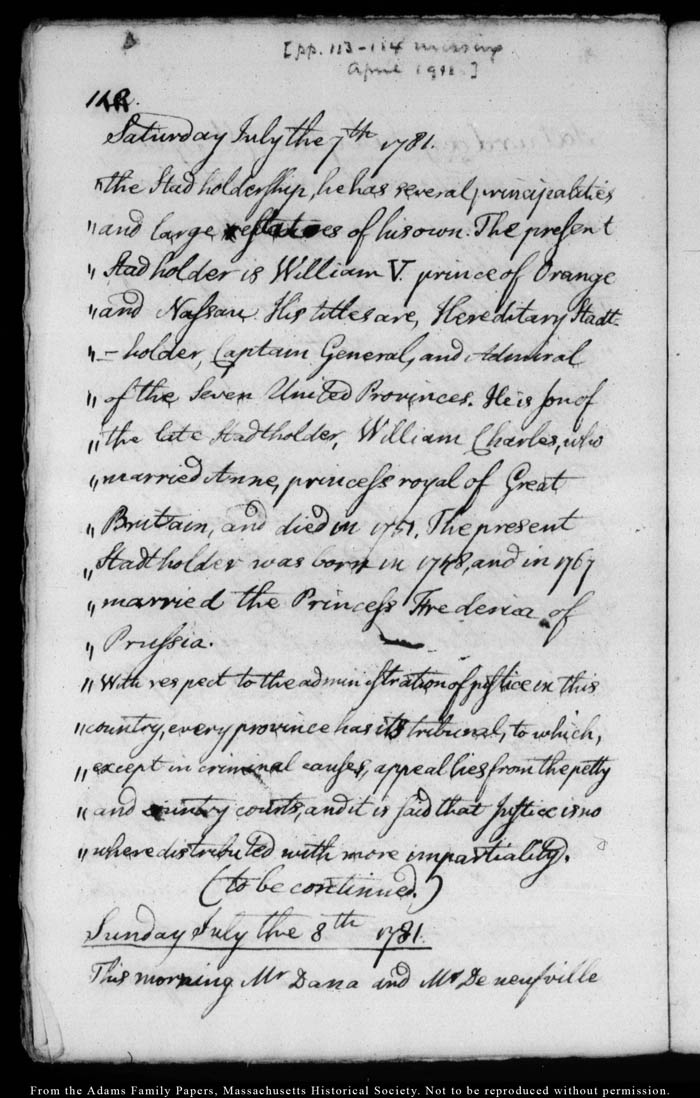 [pp. 113-114 missing
April 1911.]
112.
Saturday July the 7th 1781.
"the Stadholdership, he has several principalities
"and large estates of his own. The present
"Stadholder is William V. prince of Orange
"and Nassau. His titles are, Hereditary Stadt-
"-holder, Captain General, and Admiral
"of the Seven United Provinces. He is son of
"the late Stadtholder, William Charles, who
"married Anne, princess royal of Great
"Britain, and died in 1751. The present
"Stadtholder was born in 1748, and in 1767
"married the Princess Frederica of
"Prussia.
"With respect to the administration of justice in this
"country, every province has its tribunal, to which,
"except in criminal causes, appeal lies from the petty
"and country courts, and it is said that justice is no
"where distributed with more impartiality.
(to be continued.)
Sunday July the 8th 1781.
This morning Mr Dana and Mr De neufville
From the Adams Family Papers, Massachusetts Historical Society. Not to be reproduced without permission.